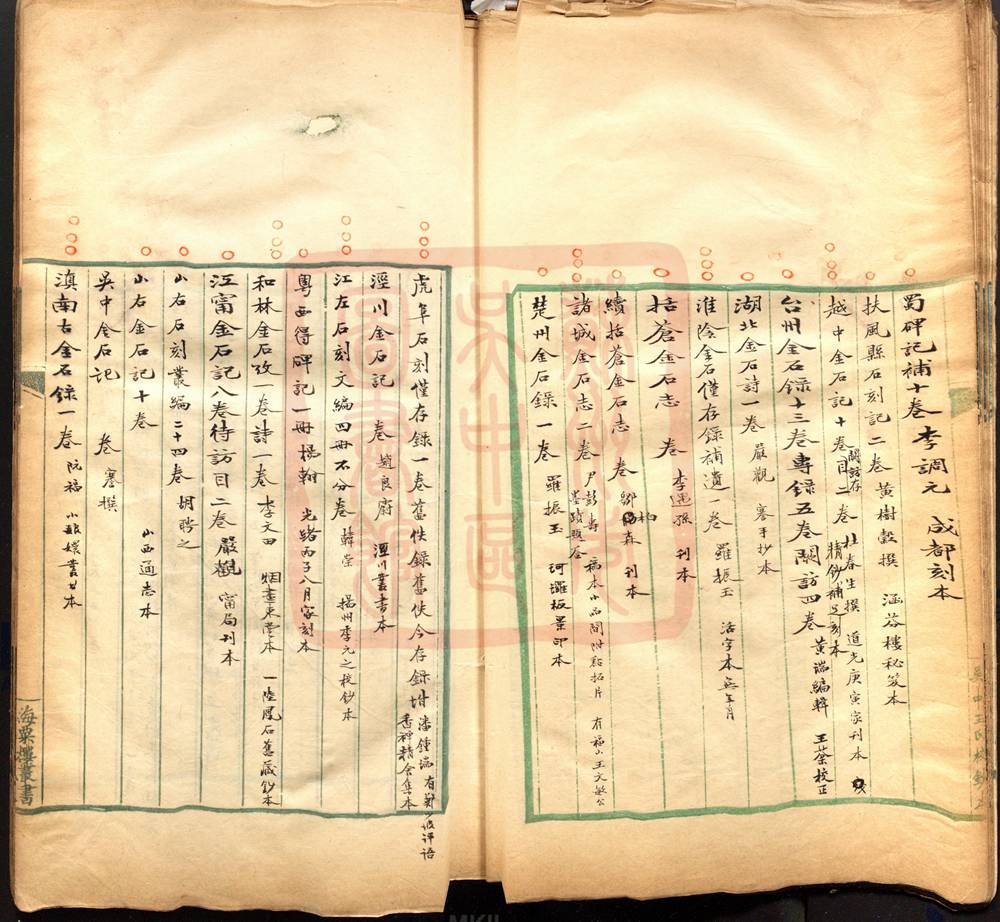 蜀碑記補十卷 李調元 成都刻本
扶風縣石刻記二卷 黃樹穀撰 涵芬樓秘笈本
越中金石記十卷目二卷 杜春生撰 道光庚寅家刊本
闕訪存
精鈔補足刻本
台州金石錄十三卷專錄五卷闕訪四卷 黃瑞編輯 王棻校正
湖北金石詩一卷 嚴觀 寫手抄本
淮陰金石僅存錄補遺一卷 羅振玉 活字本無年月
括蒼金石志 卷 李遇孫 刊本
續括蒼金石志 卷 鄒柏森 刊本
諸城金石志二卷 尹彭壽 稿本小品間附黏拓片 有福山王文敏公
墨蹟題簽
楚州金石錄一卷 羅振玉 珂羅板景印本
虎阜石刻僅存錄一卷舊佚錄舊佚今存錄坿 潘鍾瑞 有鄭 評語
香禪精舍集本
涇川金石記 卷 趙良澍 涇川叢書本
江左石刻文編四冊不分卷 韓崇 揚州李元之校鈔本
粵西得碑記一冊 楊翰 光緒丙子八月家刻本
和林金石攷一卷詩一卷 李文田 烟畫東堂本 一陸鳳石舊藏鈔本
江甯金石記八卷待訪目二卷 嚴觀 甯局刊本
山右石刻叢編二十四卷 胡聘之
山右金石記十卷 山西通志本
吳中金石記 卷 謇撰
滇南古金石錄一卷 阮福 小琅嬛叢書本
海粟樓叢書